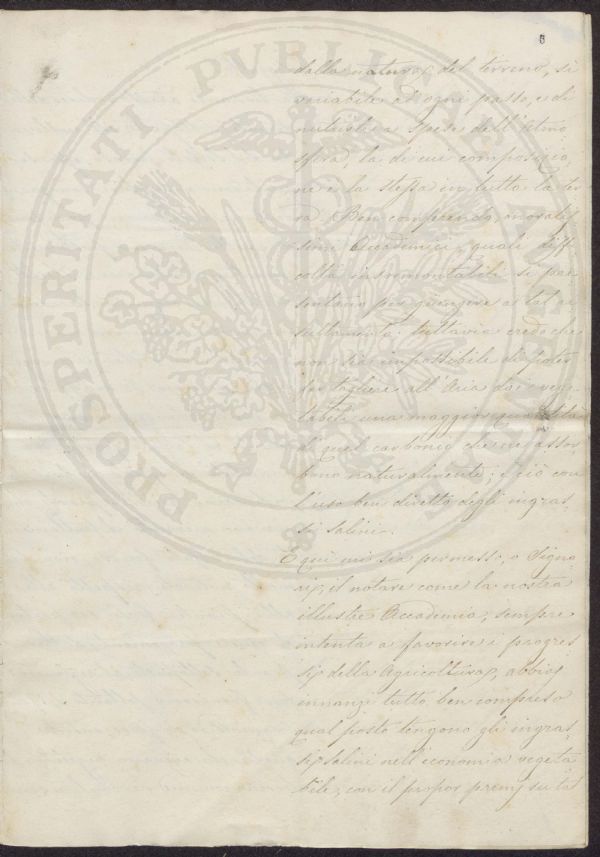 5
PROSPERITATI PVBLICAE AVGENDAE
dalla natura del terreno, sì
variabile ad ogni passo, e di
nutrirli a spese dell'Atmo
sfera, la di cui composizio,
ne è la stessa in tutta la ter
ra. Ben comprendo, onoratis
simi Accademici, quali diffi
coltà insormontabili si pre
sentano per giungere a tal ri
sultamento: tuttavia credo che
non sia impossibile di poter
far togliere all'Aria dai vege
tabili una maggior quantità
di quel carbonio che ne assor
bono naturalmente; e ciò con
l'uso ben diretto degli ingras
si salini.
E qui mi sia permesso, o Signo
ri, il notare come la nostra
illustre Accademia, sempre
intenta a favorire i progres
si della Agricoltura, abbia
innanzi tutto ben compreso
qual posto tengono gli ingras
si salini nell'economia vegeta
bile, con il propor premj su tal